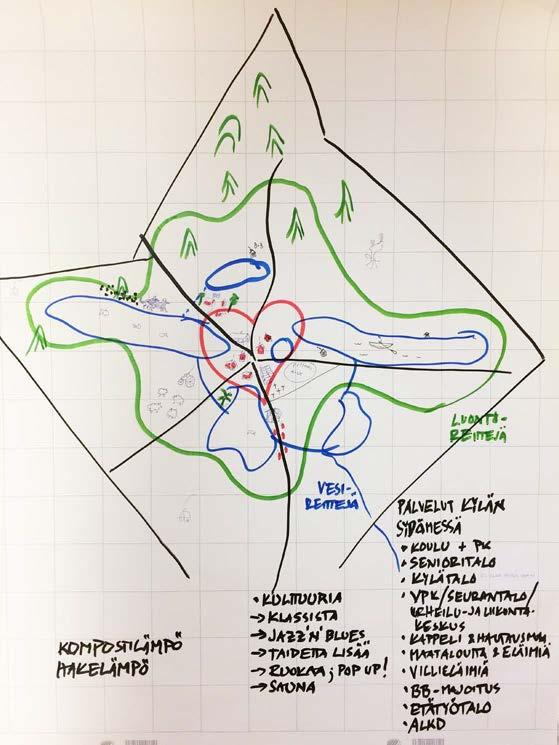 LUONTO-
REITTEJÄ
VESI-
REITTEJÄ
PALVELUT KYLÄN
SYDÄMESSÄ
• KOULU + PK
• SENIORITALO
• KYLÄTALO
• VPK/SEURANTALO/
URHEILU- JA LIIKUNTA-
KESKUS
• KAPPELI & HAUTAUSMAA
• MAATALOUTTA & ELÄIMIÄ
• VILLIELÄIMIÄ
• BB-MAJOITUS
• ETÄTYÖTALO
• ALKO
• KULTTUURIA
→ KLASSISTA
→ JAZZ'N'BLUES
→ TAIDETTA LISÄÄ
→ RUOKAA; POP UP!
→ SAUNA
KOMPOSTILÄMPÖ
HAKELÄMPÖ